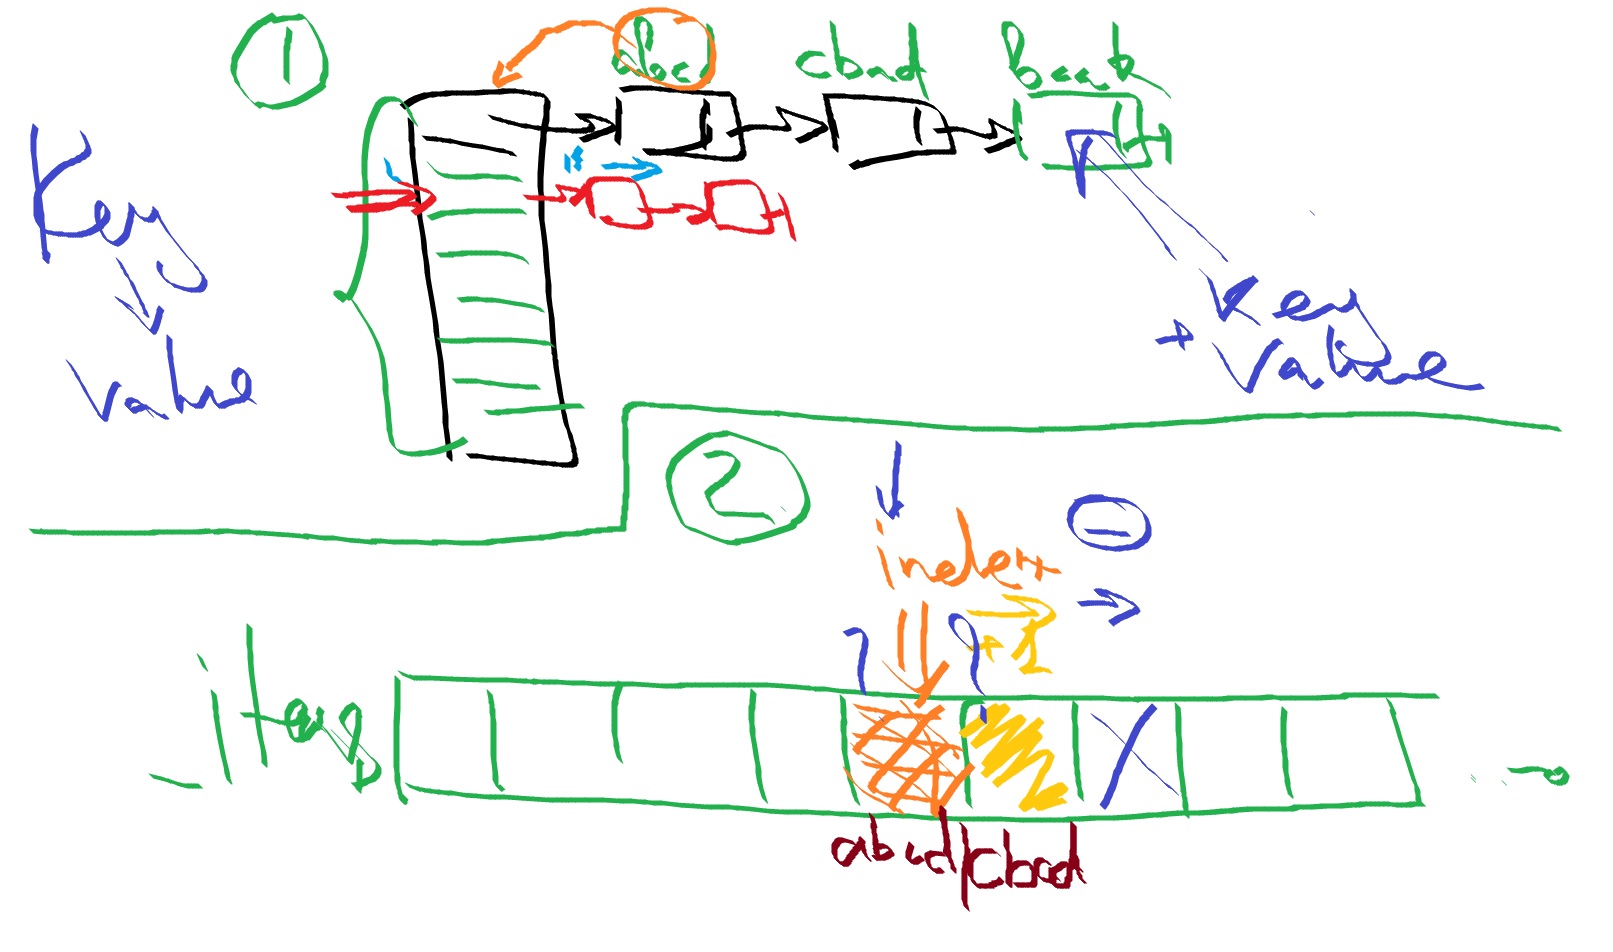 1
cbad
Key
Value
Key
+ Value
2
index
+1
_items
abcd/cbad